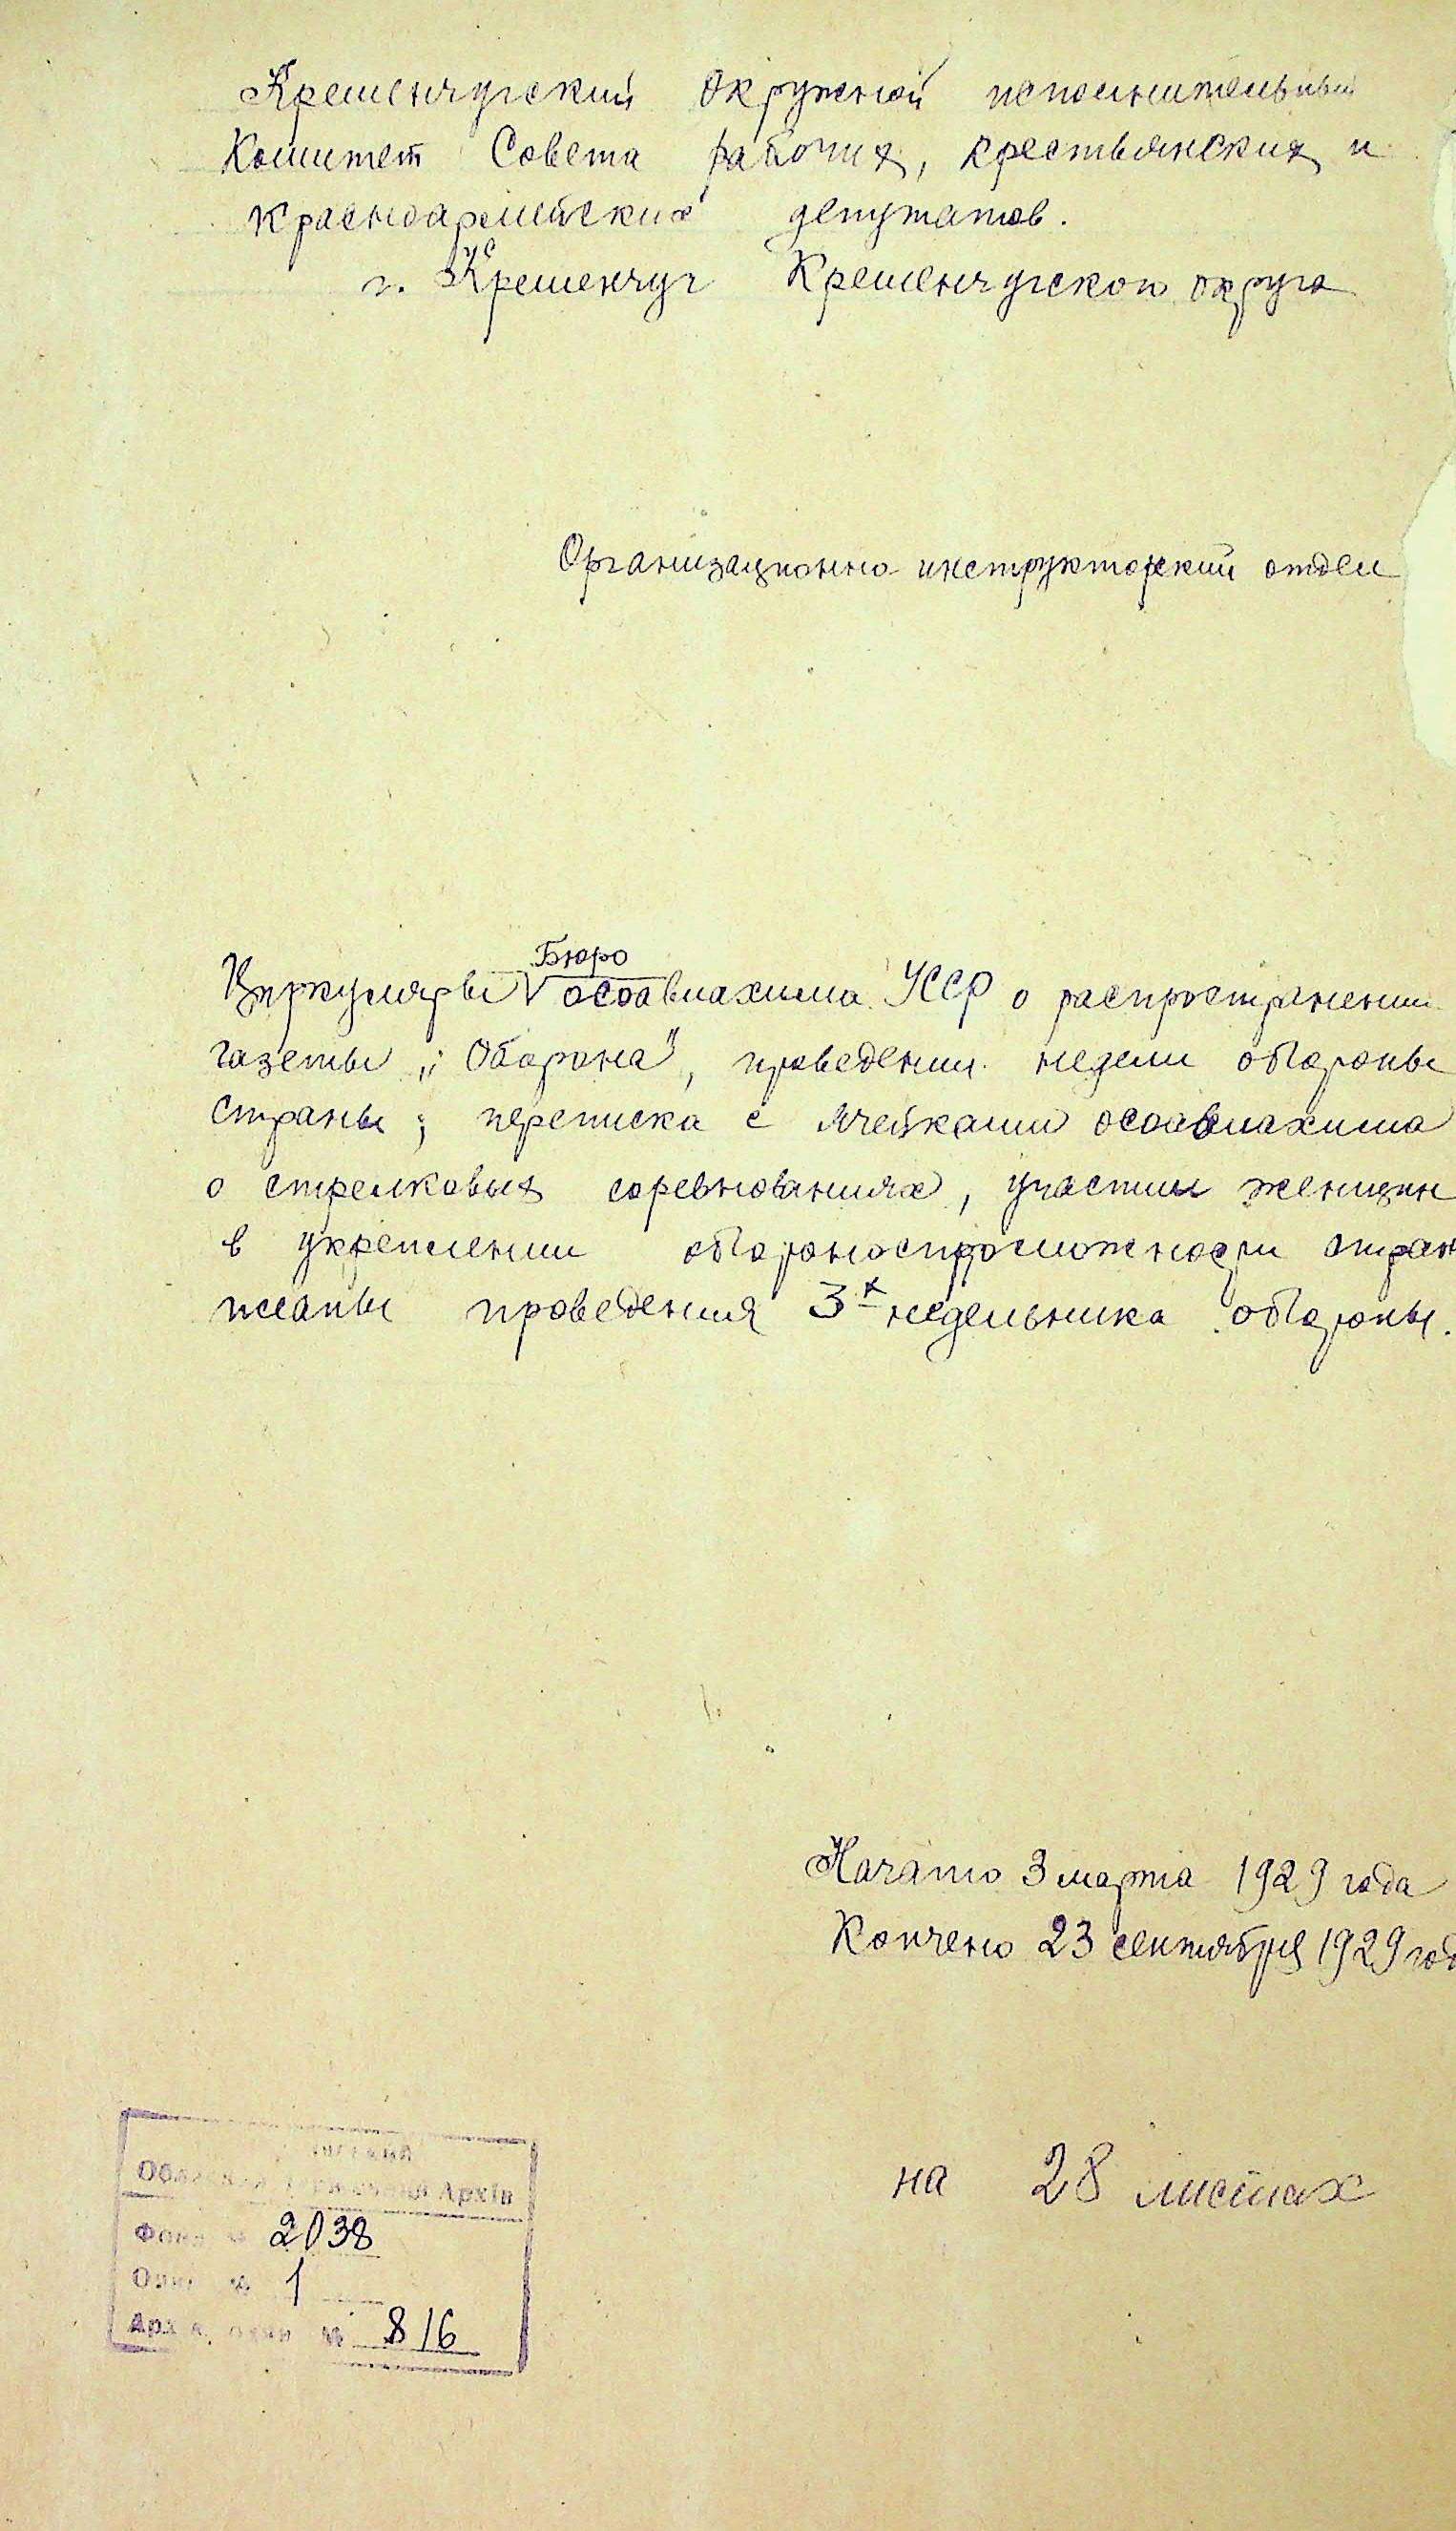 Кременчугский Окружной исполнительный
Комитет Совета рабочих, крестьянских и
красноармейских депутатов.
г. Кременчуг Кременчугского округа
Организационно-инструкторский отдел
Бюро
Циркуляры V осоавиахима УССР о распространении
газеты „Оборона", проведении недели обороны
страны; переписка с ячейками осоавиахима
о стрелковых соревнованиях, участии женщин
в укреплении обороноспособности стран
планы проведения 3х недельника обороны.
Начато 3 марта 1929 года
Кончено 23 сентября 1929 год
на 28 листах
Архів
Фонд № 2038
Опис № 1
№ 816